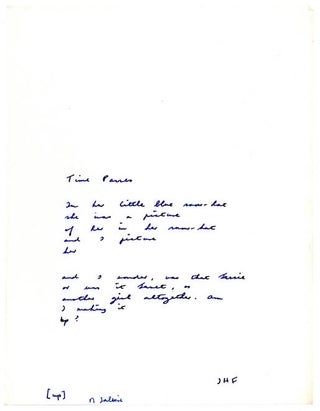 Time Passes
In her little blue snow-hat
she was a picture
of her in her snow-hat
and I picture
her
and I wonder, was that
or was it Janet, or
another girl altogether. Am
I making it
up?
JHF
[up]